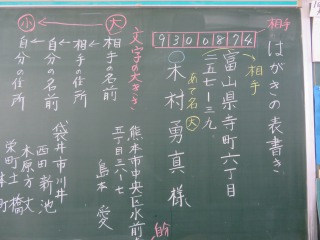 相手
はがきの表書き
9300874
相手
富山県寺町六丁目
二五七-三九
あて名 大
木村勇真様
熊本市中央区水前
五丁目三八-七
島本 愛
文字の大きさ
大 相手の名前
相手の住所
自分の名前
小 自分の住所
袋井市川井
西田 新池
木原方丈
栄町土橋